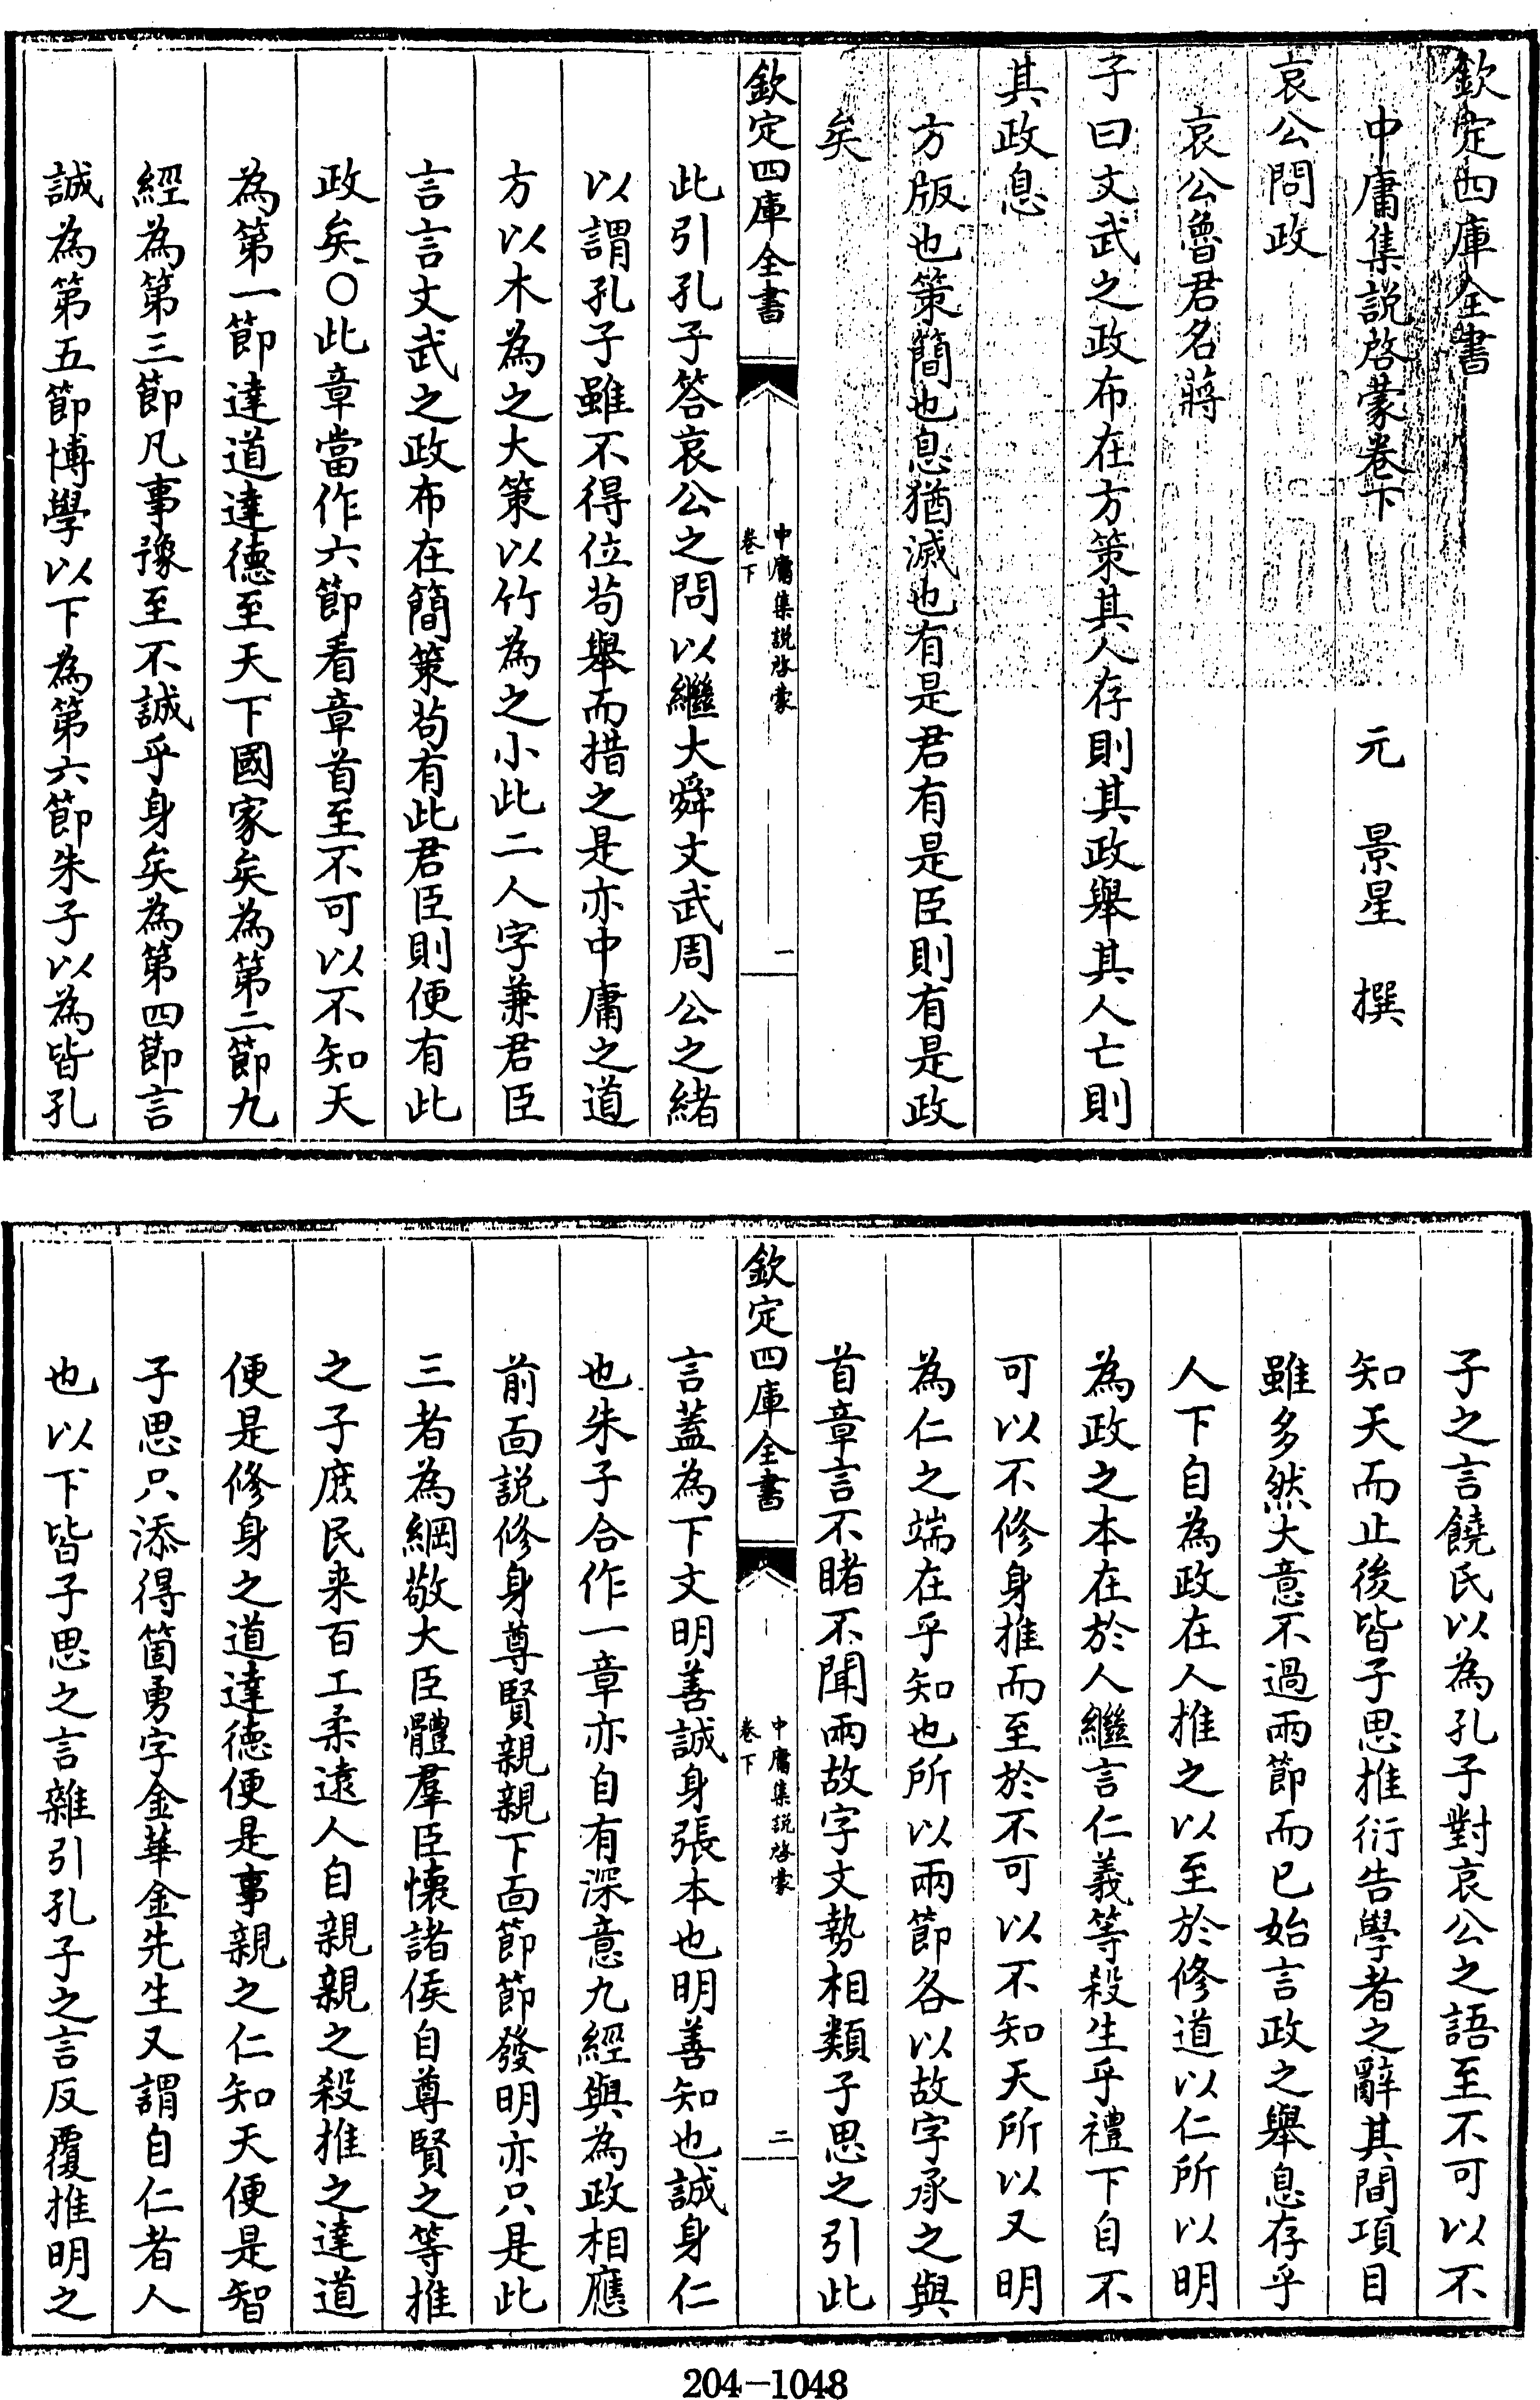 欽定四庫全書
中庸集説啓蒙卷下
元　景星　撰
哀公問政
哀公魯君名蔣
子曰文武之政布在方策其人存則其政舉其人亡則
其政息
方版也策簡也息猶滅也有是君有是臣則有是政
矣
欽定四庫全書
中庸集説啓蒙
卷下
一
此引孔子答哀公之問以繼大舜文武周公之緒
以謂孔子雖不得位茍舉而措之是亦中庸之道
方以木為之大策以竹為之小此二人字兼君臣
言言文武之政布在簡策茍有此君臣則便有此
政矣○此章當作六節看章首至不可以不知天
為第一節達道達德至天下國家矣為第二節九
經為第三節凡事豫至不誠乎身矣為第四節言
誠為第五節博學以下為第六節朱子以為皆孔
子之言饒氏以為孔子對哀公之語至不可以不
知天而止後皆子思推衍告學者之辭其間項目
雖多然大意不過兩節而已始言政之舉息存乎
人下自為政在人推之以至於修道以仁所以明
為政之本在於人繼言仁義等殺生乎禮下自不
可以不修身推而至於不可以不知天所以又明
為仁之端在乎知也所以兩節各以故字承之與
首章言不睹不聞兩故字文勢相類子思之引此
欽定四庫全書
中庸集説啓蒙
卷下
二
言蓋為下文明善誠身張本也明善知也誠身仁
也朱子合作一章亦自有深意九經與為政相應
前面説修身尊賢親親下面節節發明亦只是此
三者為綱敬大臣體羣臣懷諸侯自尊賢之等推
之子庶民来百工柔遠人自親親之殺推之達道
便是修身之道達德便是事親之仁知天便是智
子思只添得箇勇字金華金先生又謂自仁者人
也以下皆子思之言雜引孔子之言反覆推明之
204-1048